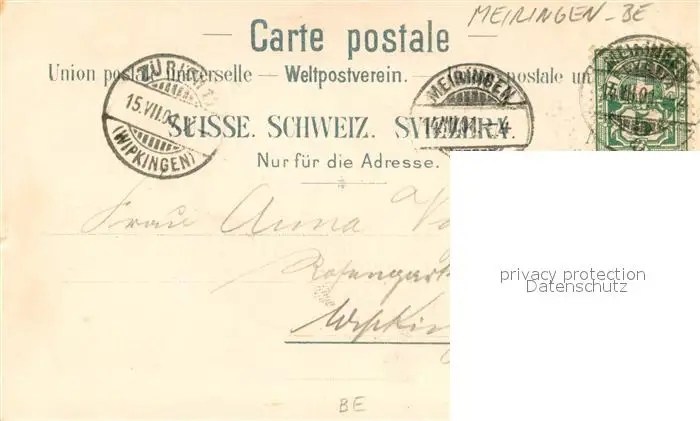 MEIRINGEN - BE
Carte postale
Union postale universelle — Weltpostverein. — postale un
ZÜRICH
15.VII.01
(WIPKINGEN)
MEIRINGEN
14.VII.01.-4
MEIRINGEN
SUISSE. SCHWEIZ. SVIZZERA.
Nur für die Adresse.
Frau Anna
Rosengart
Wipkin
privacy protection
Datenschutz
BE